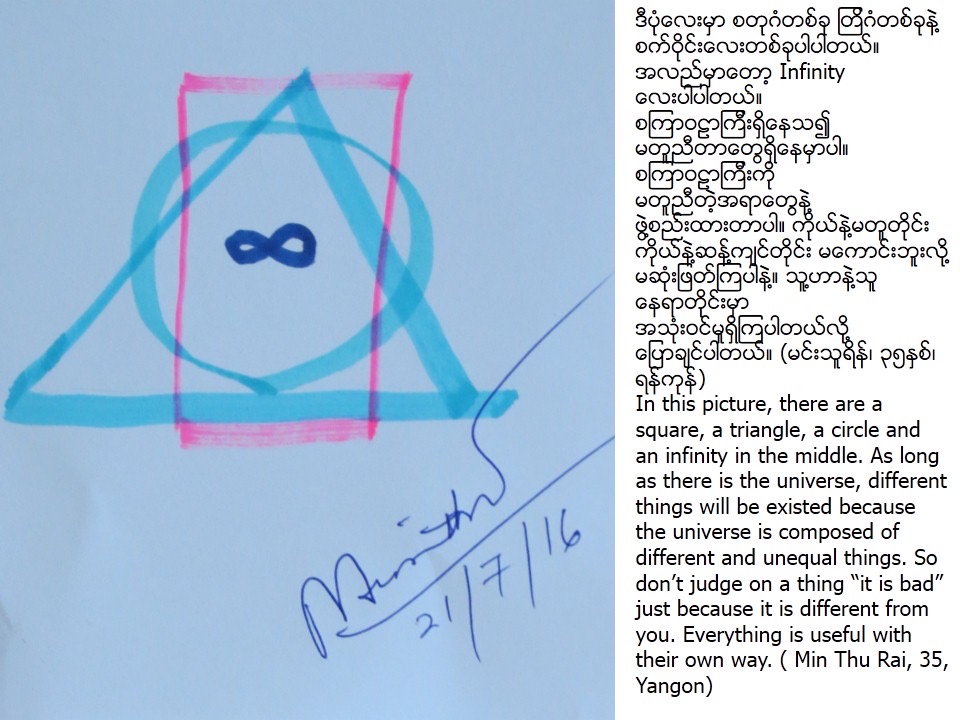 ဒီပုံလေးမှာ စတုဂံတစ်ခု တြိဂံတစ်ခုနဲ့
စက်ဝိုင်းလေးတစ်ခုပါပါတယ်။
အလည်မှာတော့ Infinity
လေးပါပါတယ်။
စကြာဝဠာကြီးရှိနေသ၍
မတူညီတာတွေရှိနေမှာပါ။
စကြာဝဠာကြီးကို
မတူညီတဲ့အရာတွေနဲ့
ဖွဲ့စည်းထားတာပါ။ ကိုယ်နဲ့မတူတိုင်း
ကိုယ်နဲ့ဆန့်ကျင်တိုင်း မကောင်းဘူးလို့
မဆုံးဖြတ်ကြပါနဲ့။ သူ့ဟာနဲ့သူ
နေရာတိုင်းမှာ
အသုံးဝင်မှုရှိကြပါတယ်လို့
ပြောချင်ပါတယ်။ (မင်းသူရိန်၊ ၃၅နှစ်၊
ရန်ကုန်)
In this picture, there are a
square, a triangle, a circle and
an infinity in the middle. As long
as there is the universe, different
things will be existed because
the universe is composed of
different and unequal things. So
don’t judge on a thing “it is bad”
just because it is different from
you. Everything is useful with
their own way. ( Min Thu Rai, 35,
Yangon)
∞
21/7/16